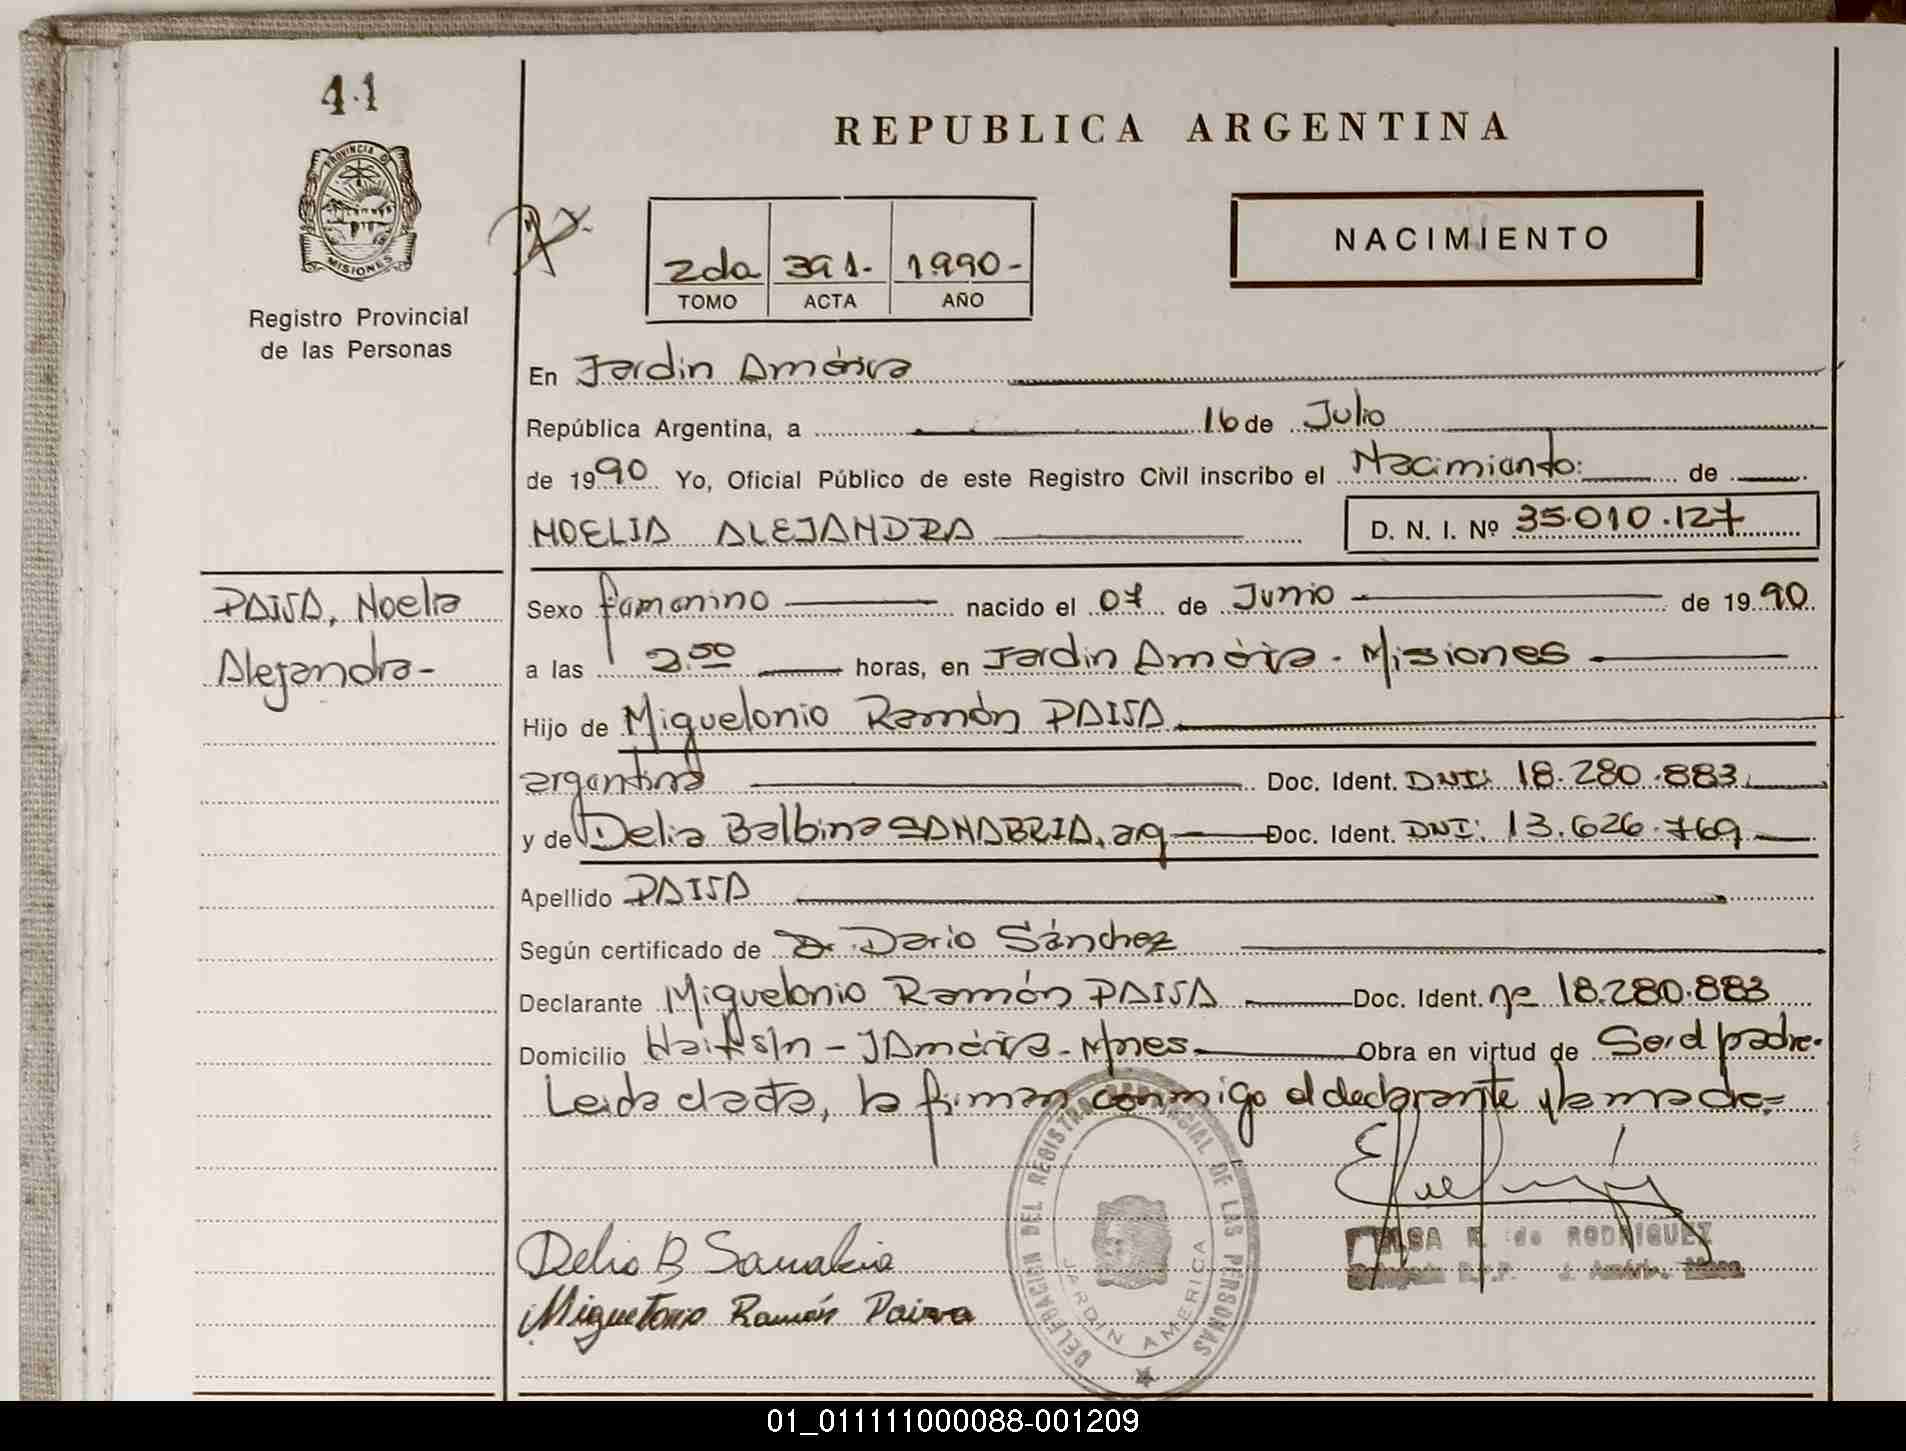 41
PROVINCIA DE
MISIONES
Registro Provincial
de las Personas
REPUBLICA ARGENTINA
2da 391.- 1990-
TOMO ACTA AÑO
NACIMIENTO
En Jardin América
República Argentina, a 16 de Julio
de 1990 Yo, Oficial Público de este Registro Civil inscribo el Nacimiento: de
NOELIA ALEJANDRA D. N. I. Nº 35.010.127
PAIVA, Noelia
Alejandra-
Sexo femenino nacido el 07 de Junio de 1990
a las 2.50 horas, en Jardin América - Misiones
Hijo de Miguelonio Ramón PAIVA
argentina Doc. Ident. DNI: 18.280.883
y de Delia Balbina SANABRIA, arg Doc. Ident. DNI: 13.626.769
Apellido PAIVA
Según certificado de Dr. Dario Sánchez
Declarante Miguelonio Ramón PAIVA Doc. Ident. nº 18.280.883
Domicilio Haití s/n - J América - Mnes. Obra en virtud de Ser el padre.
Leida el acta, la firman conmigo el declarante y la madre.=
DELEGACION DEL REGISTRO PROVINCIAL DE LAS PERSONAS
JARDIN AMERICA
ELSA R. de RODRIGUEZ
Delegada R.P.P. J. América, Mnes
Delia B Sanabria
Miguelonio Ramón Paiva
01_011111000088-001209